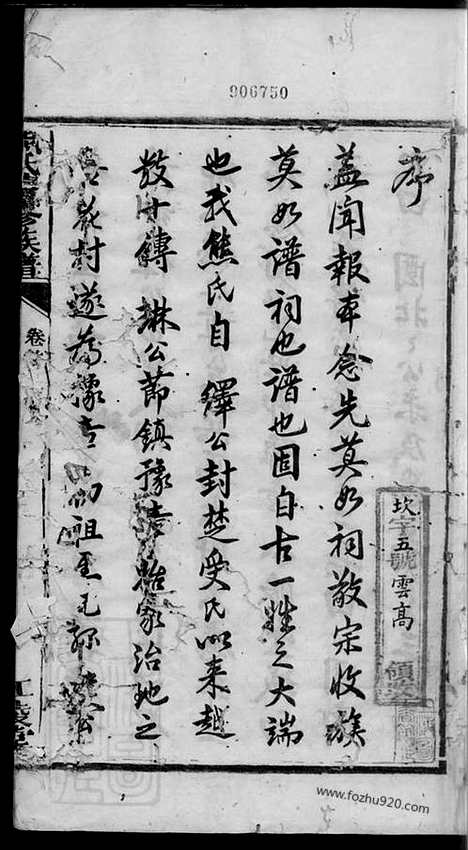 906750
序
蓋聞報本念先莫如祠敬宗收族
莫如譜祠也譜也固自古一姓之大端
也我熊氏自 繹公封楚受氏以來越
數十傳 琳公節鎮豫章始家治地之
花村遂為豫章始祖至元
坎字五號雲高
領
卷
www.fozhu920.com